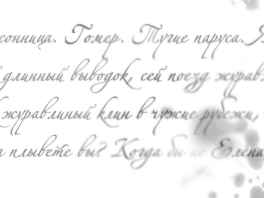 сонница. Гомер. Тугие паруса. Я
длинный выводок, сей поезд журав
журавлиный клин в чужие рубежи,
плывете вы? Когда бы не Елена